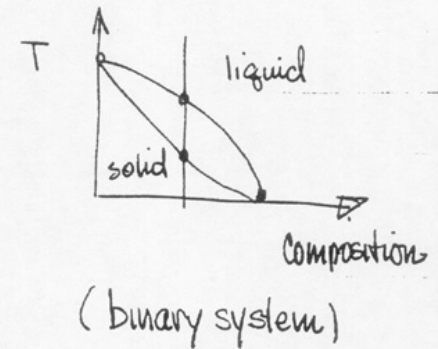 T
liquid
solid
Composition
(binary system)